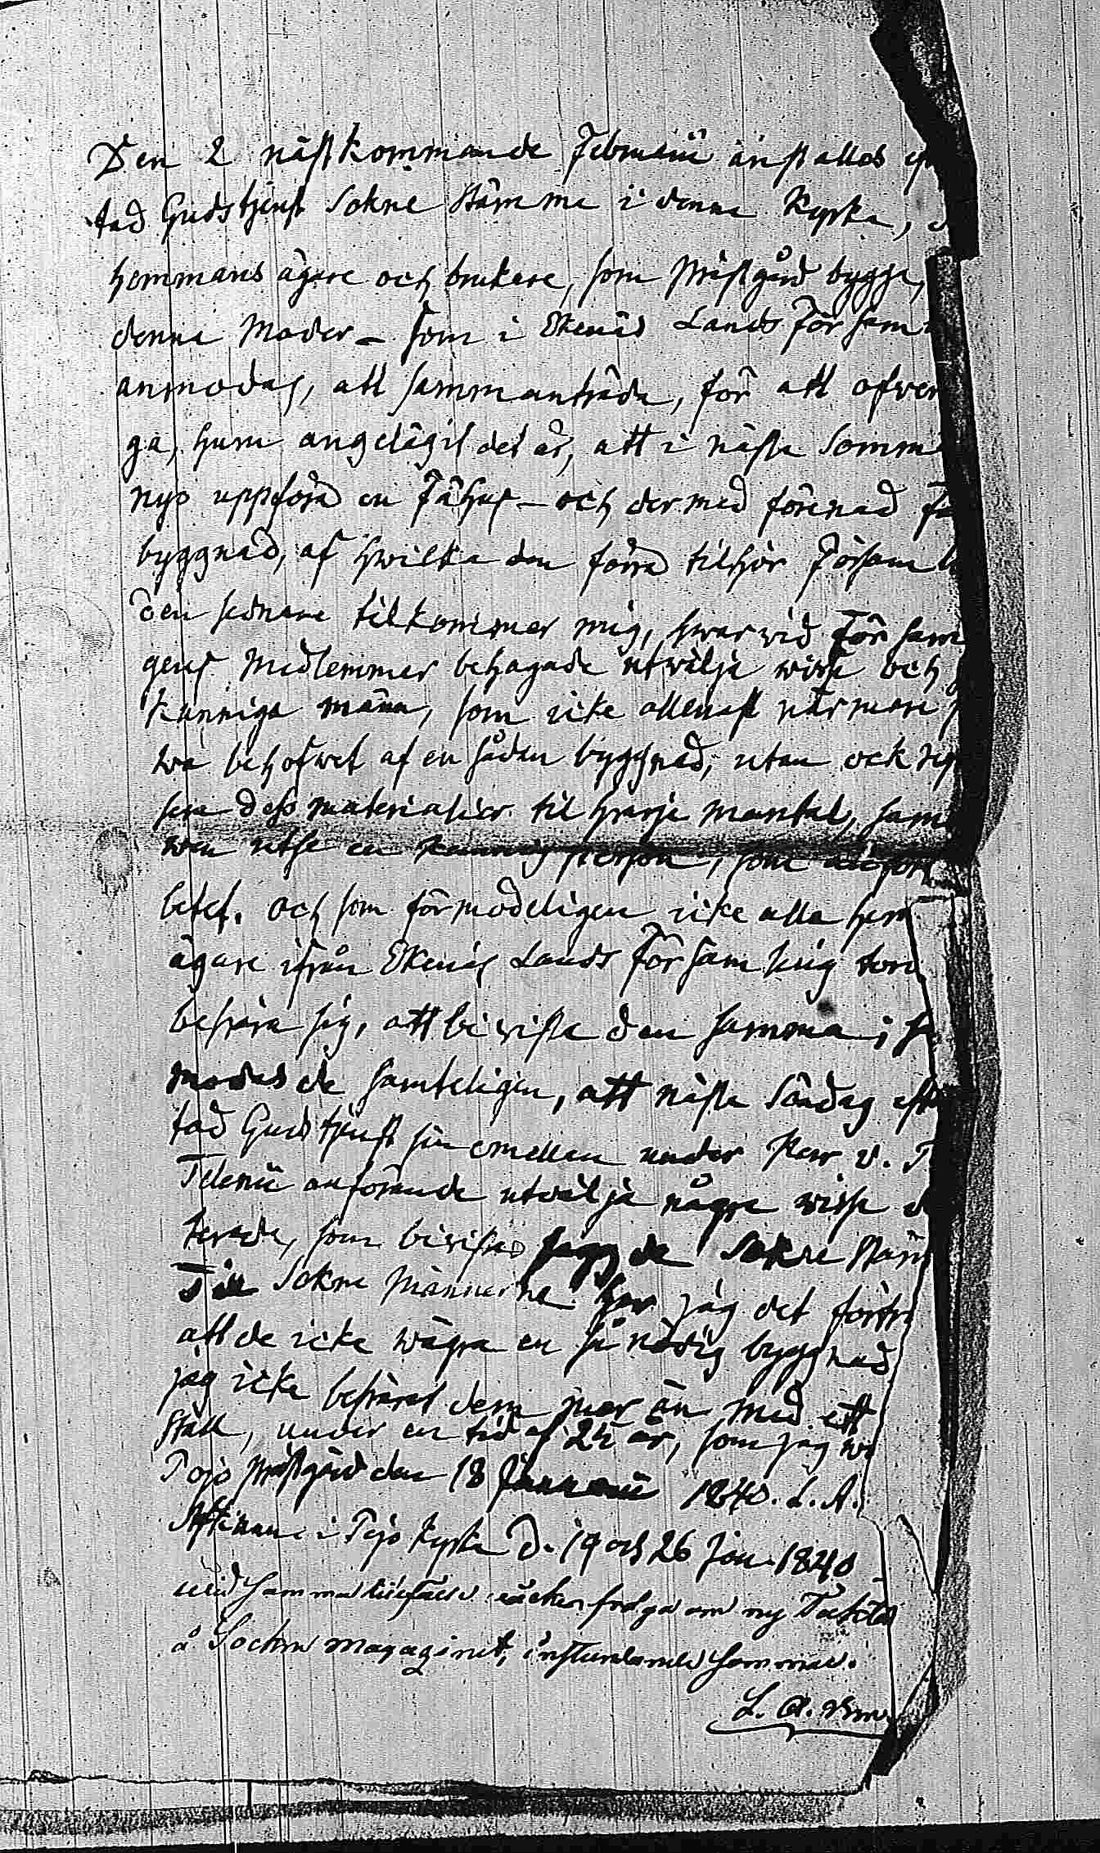 Den 2 nästkommande Februarii anställes
tad Gudstjenst Sokne Stämma i denna Kyrka,
hemmans ägare och brukare, som Prästgård bygga,
denna Moder- som i Ekenäs Lands Försam
anmodas, att sammanträda, för att öfver
gå, huru angelägit det är, att i nästa Somm
nyo uppföra en Fähus- och der med förenad
byggnad, af hwilka den förra tilhör Församl
den sednare tilkommer mig, hwarwid Försam
gens Medlemmar behagade utwälja wisse och
kunniga männ, som icke allenast närmare
wa behofwet af en sådan byggnad, utan ock
sera dess materialier til hvarje mantal, sam
wäu utse en kunnig person, som
betet. och som förmodeligen icke alla hem
ägare ifrån Ekenäs Lands Församling tord
beswära sig, att bevista den samma,
modas de samteligen, att nästa Söndag efte
tad Gudstjenst sin emellan under Herr v. P
Telenii anförande utwälja några wisse
terade, som bevista sagda Sokne Stäm
Till Sokne Männerne har jag det förtr
att de icke wägra en så nödig byggnad
jag icke beswärat dem mer än med ett
Stall, under en tid af 24 år, som jag
Pojo Prästgård den 18 Januarii 1840. L. A.
i Pojo Kyrka d. 19 och 26 Jan. 1840
wid samma tillfälle väckes fråga om ny
å Sockne magazinet,
L. A.